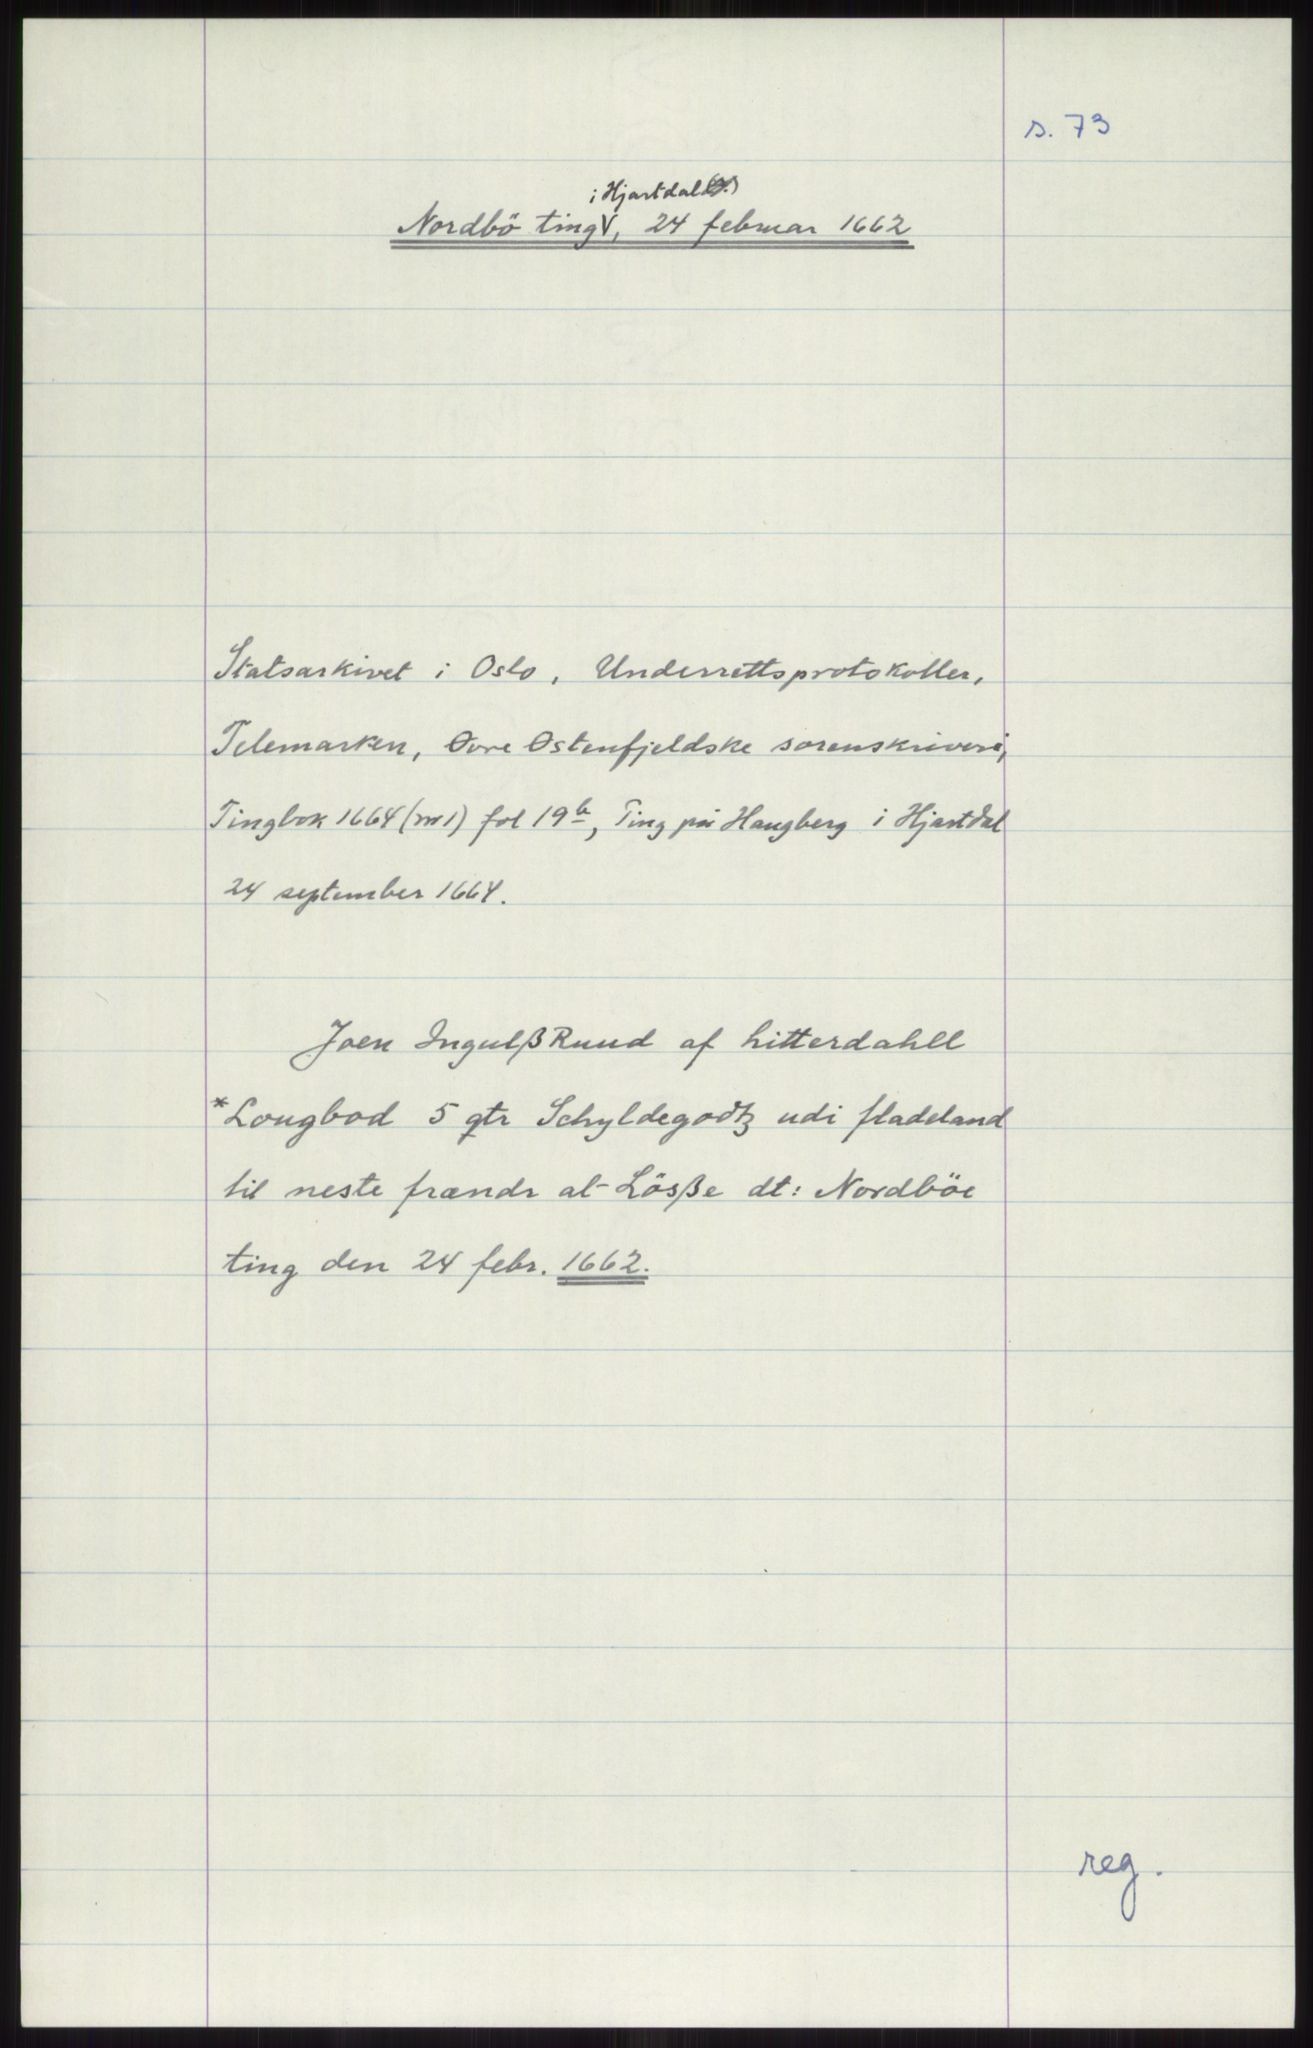 s. 73
i Hjartdal
Nordbö ting V, 24 februar 1662
Statsarkivet i Oslo, Underrettsprotokoller,
Telemarken, Øvre Østenfjeldske sorenskriveri,
Tingbok 1664 (nr 1) fol 19b, Ting på Haugberg i Hjartdal
24 september 1664.
Joen Ingulß Ruud af hitterdahll
*Lougbod 5 qtr Schyldegodtz udi fladeland
til neste frændr at Lösße dt: Nordböe
ting den 24 febr. 1662.
reg.